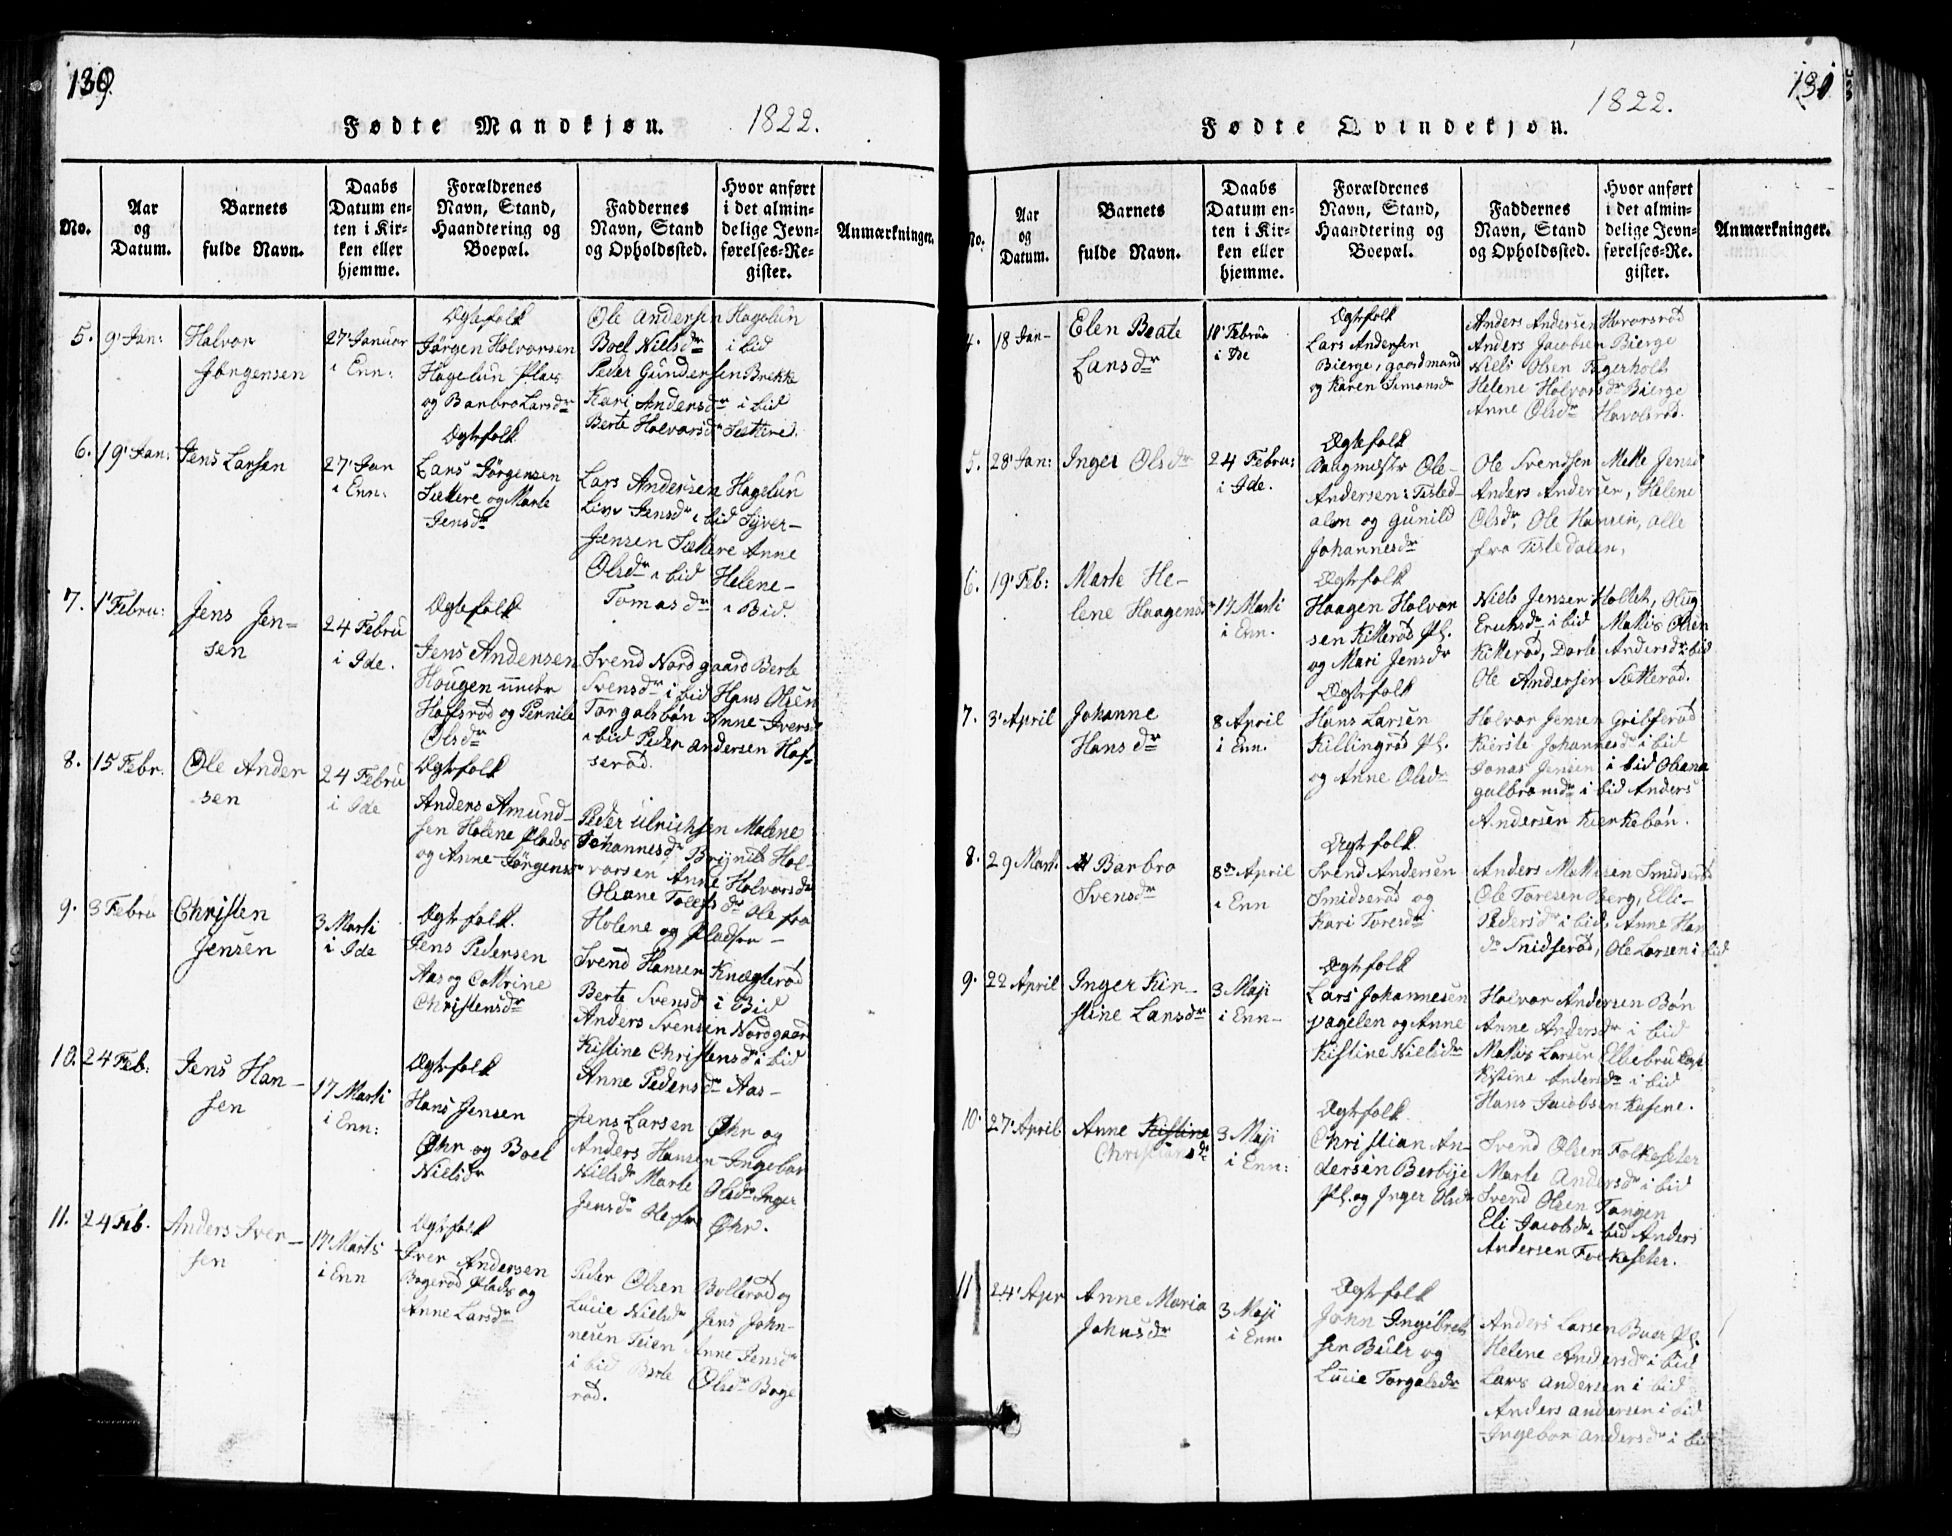 130.
Fødte Mandkjøn. 1822.
No.
Aar og Datum.
Barnets fulde Navn.
Daabs Datum enten i Kirken eller hjemme.
Forældrenes Navn, Stand, Haandtering og Boepæl.
Faddernes Navn, Stand og Opholdssted.
Hvor anført i det almindelige Jevnførelses-Register.
Anmærkninger.
5. 9' Jan:
Halvor
Jörgensen
27' Januar
i Enn:
Ægtefolk
Jörgen Holvorsen
Hagelun Plads
og Barbro Larsdr
Ole Andersen Hagelun
Boel Nielsdr i bid
Peder Gundersen Brekke
Kari Andersdr i bid
Berte Holvorsdr Sættere.
6. 19' Jan:
Jens Larsen
27' Jan
i Enn:
Ægtefolk
Lars Jörgensen
Sættere og Marte
Jensdr
Lars Andersen Hagelun
Live Jensdr i bid Syver
Jensen Sættere Anne
Olsdr i bid Helene
Tomasdr i Bid.
7. 1' Febru:
Jens Jen=
sen
24 Febru
i Ide.
Ægtefolk
Jens Andersen
Hougen under
Hafsröd og Pernile
Olsdr
Svend Nordgaard Berte
Svensdr i bid Hans Olsen
Torgalsbön Anne Iversdr
i bid Peder Andersen Haf=
seröd.
8. 15 Febr.
Ole Ander
sen
24 Febru
i Ide
Ægtefolk
Anders Amund=
sen Holene Plads
og Anne Jörgensdr
Peder Ulrichsen Malene
Johannesdr Brynild Hol=
vorsen Anne Holvorsdr
Oleane Tolefsdr Ole fra
Holene og Pladsen
9. 3 Febru
Christen
Jensen
3 Marti
i Ide
Ægtefolk.
Jens Pedersen
Aas og Cattrine
Christensdr
Svend Hansen Knægteröd
Berte Svensdr i Bid
Anders Svensen Nordgaard
Kistine Christensdr i bid
Anne Pedersdr Aas
10. 24 Feb:
Jens Han
sen
17 Marti
i Enn:
Ægtefolk
Hans Jensen
Öhr og Boel
Nielsdr
Jens Larsen Öhr og
Anders Hansen Ingebor
Nielsdr Marte Olsdr Inger
Jensdr Ole fra Öhr.
11. 24 Feb.
Anders Iver
sen
17' Marts
i Enn
Ægtefolk
Iver Andersen
Bogeröd Plads og
Anne Larsdr
Peder Olsen Bolleröd og
Lucie Nielsdr Jens John=
nesen Teien Anne Jensdr
i bid Berte Olsdr Boge
röd.
131
Fødte Qvindekjøn. 1822.
No.
Aar og Datum.
Barnets fulde Navn.
Daabs Datum enten i Kirken eller hjemme.
Forældrenes Navn, Stand, Haandtering og Boepæl.
Faddernes Navn, Stand og Opholdssted.
Hvor anført i det almindelige Jevnførelses-Re. gister.
Anmærkninger.
4. 18 Jan
Elen Beate
Larsdr
10' Februa
i Ide
Ægtefolk
Lars Andersen
Bierge, gaardmand
og Karen Simonsdr
Anders Andersen Hovorsröd
Anders Jacobsen Bierge
Niels Olsen Tigerholt
Helene Holvorsdr Bierge
Anne Olsdr Havorsröd.
5. 28' Jan:
Inger Olsdr
24 Febru:
i Ide.
Ægtefolk
Ole
Andersen i Tisted=
alen og Gunild
Johannesdr
Ole Svendsen Mette Jensdr
Anders Andersen, Helene
Olsdr, Ole Hansen, alle
fra Tistedalen,
6. 19' Feb:
Marte He=
lene Haagensdr
17 Marti
i Enn.
Ægtefolk
Haagen Holvor
sen Kitteröd Pl.
og Mari Jensdr
Niels Jensen Hollet, Olug
Erichsdr i bid Mattis Olsen
Kitteröd, Dorte Andersdr i bid
Ole Andersen Sætteröd.
7. 3' April
Johanne
Hansdr
8 April
i Enn.
Ægtefolk
Hans Larsen
Killingröd Pl.
og Anne Olsdr
Holvor Jensen Gribseröd
Kierste Johannesdr i bid
Jonas Jensen i bid Oleana
Gulbransdr i bid Anders
Andersen Kierkebön.
8. 29 Mart.
Barbro
Svensdr
8de April
i Enn
Ægtefolk.
Svend Andersen
Smidseröd og
Kari Toresdr
Anders Mattisen Smidseröd
Ole Toresen Berg, Elli=
Pedersdr i bid, Anne Han
dr Smidseröd, Ole Larsen i bid
9. 22 April
Inger Kir=
stine Larsdr
3 Maji
i Enn
Ægtefolk
Lars Johannesen
Vagelen og Anne
Kistine Nielsdr
Holvor Andersen Bön
Anne Andersdr i bid
Mattis Larsen
Kistine Andersdr i bid
Hans Jacobsen Kasene.
10. 27' April
Anne Kistine
Christiansdr
3 Maji
i Enn:
Ægtefolk
Christian An=
dersen Berbye
Pl. og Inger Olsdr
Svend Olsen Folkeseter
Marte Andersdr i bid
Svend Olsen Tangen
Eli Jacobsdr i bid Anders
Andersen Folkeseter.
11 24' Apr
Anne Maria
Johnsdr
3 Maji
i Enn.
Ægtefolk
John Ingebret
sen Buer og
Lucie Torgalsdr
Anders Larsen Buer Pl.
Helene Andersdr i bid
Lars Andersen i bid
Anders Andersen i bid
Ingebor Andersdr i bid